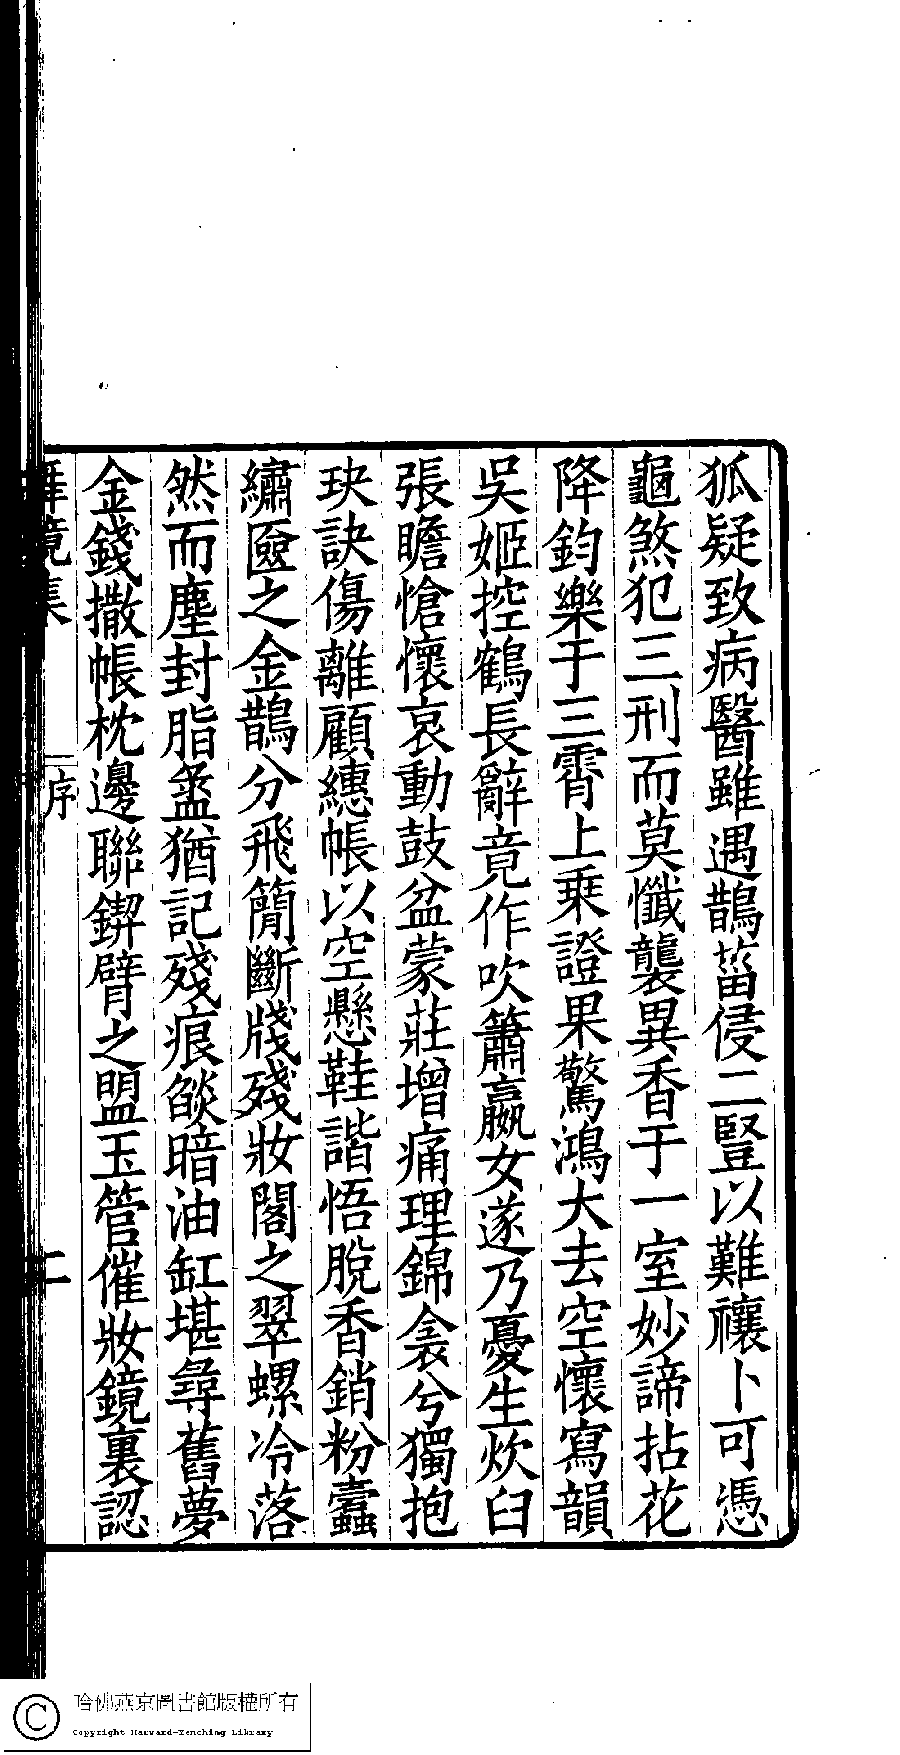 狐疑致病醫雖遇鵲菑侵二豎以難禳卜可憑
龜煞犯三刑而莫懺襲異香于一室妙諦拈花
降鈞樂于三霄上乘證果驚鴻大去空懷寫韻
吳姬控鶴長辭竟作吹簫嬴女遂乃憂生炊臼
張瞻愴懷哀動鼓盆蒙莊增痛理錦衾兮獨抱
玦訣傷離顧繐帳以空懸鞋諧悟脫香銷粉蠹
繡匳之金鵲分飛簡斷牋殘妝閣之翠螺冷落
然而塵封脂盝猶記殘痕燄暗油缸堪尋舊夢
金錢撒帳枕邊聯鍥臂之盟玉管催妝鏡裏認
舞鏡集
序
二
哈佛燕京圖書館版權所有
Copyright Harvard-Yenching Library